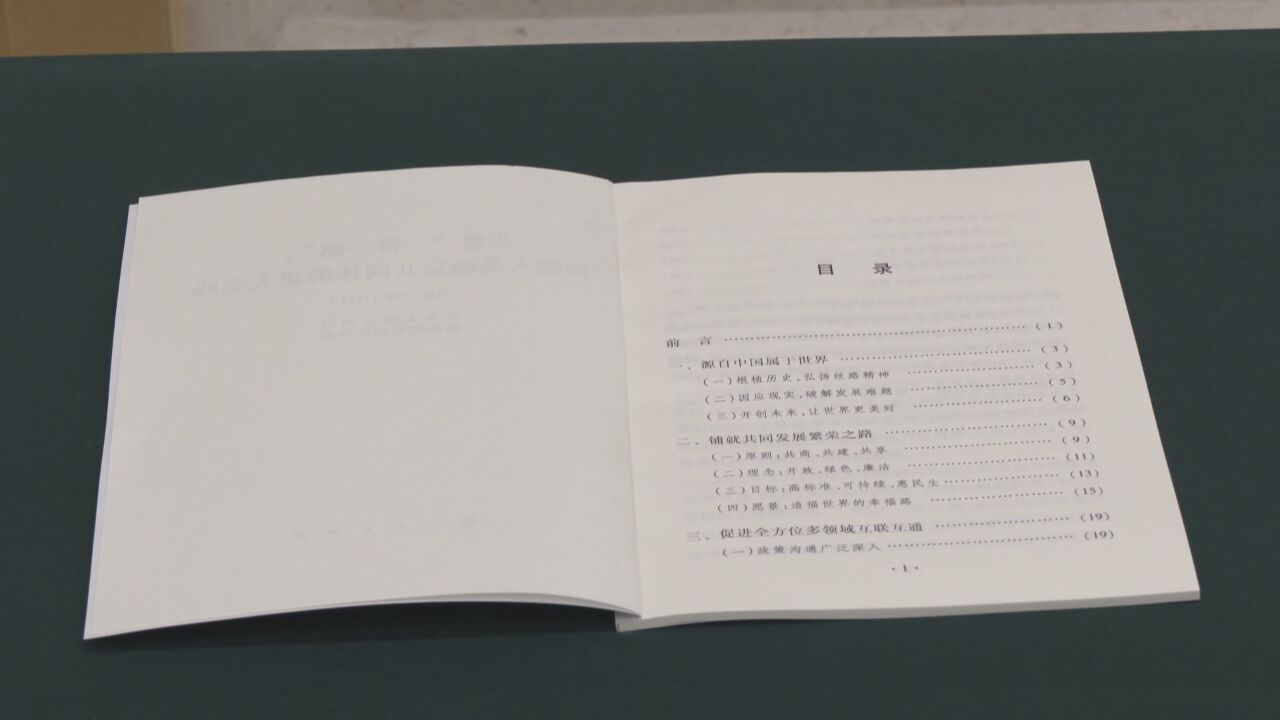 目 录
前 言 ………………………………………………… (1)
一、源自中国属于世界 ……………………………… (3)
(一)根植历史,弘扬丝路精神 ……………………… (3)
(二)因应现实,破解发展难题 ……………………… (5)
(三)开创未来,让世界更美好 ……………………… (6)
二、铺就共同发展繁荣之路 ………………………… (9)
(一)原则:共商、共建、共享 ……………………… (9)
(二)理念:开放、绿色、廉洁 ……………………… (11)
(三)目标:高标准、可持续、惠民生 ……………… (13)
(四)愿景:造福世界的幸福路 ……………………… (15)
三、促进全方位多领域互联互通 …………………… (19)
(一)政策沟通广泛深入 ……………………………… (19)
·1·